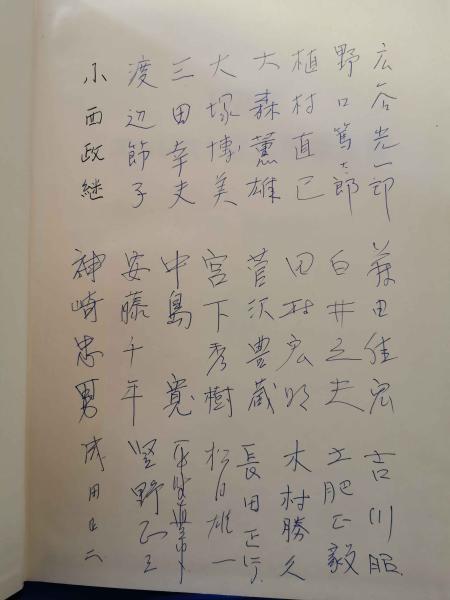 広谷光一郎
野口篤太郎
植村直己
大森薫雄
大塚博美
三田幸夫
渡辺節子
小西政継
藤田佳宏
白井
田村宏明
菅沢豊蔵
宮下秀樹
中島寛
安藤千年
神崎忠男
吉川
土肥正毅
木村勝久
長田正行
松田雄一
成田